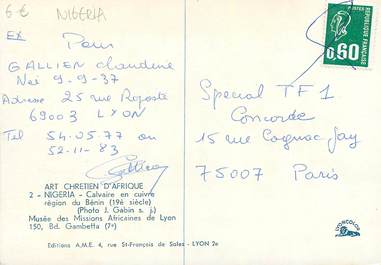 6 € NIGERIA
Ex
Paris
GALLIEN claudine
Née 9-9-37
Adresse 25 rue Roposte
69003 LYON
Tel 54.05.77 ou
52-11-83
ART CHRETIEN D'AFRIQUE
2 - NIGERIA - Calvaire en cuivre
région du Bénin (19è siècle)
(Photo J. Gabin s. j.)
Musée des Missions Africaines de Lyon
150, Bd. Gambetta (7e)
Editions A.M.E. 4, rue St-François de Sales - LYON 2e
POSTES
0,60
REPUBLIQUE FRANÇAISE
Special TF1
Concorde
15 rue Cognac-Jay
75007 Paris
LYONCOLOR